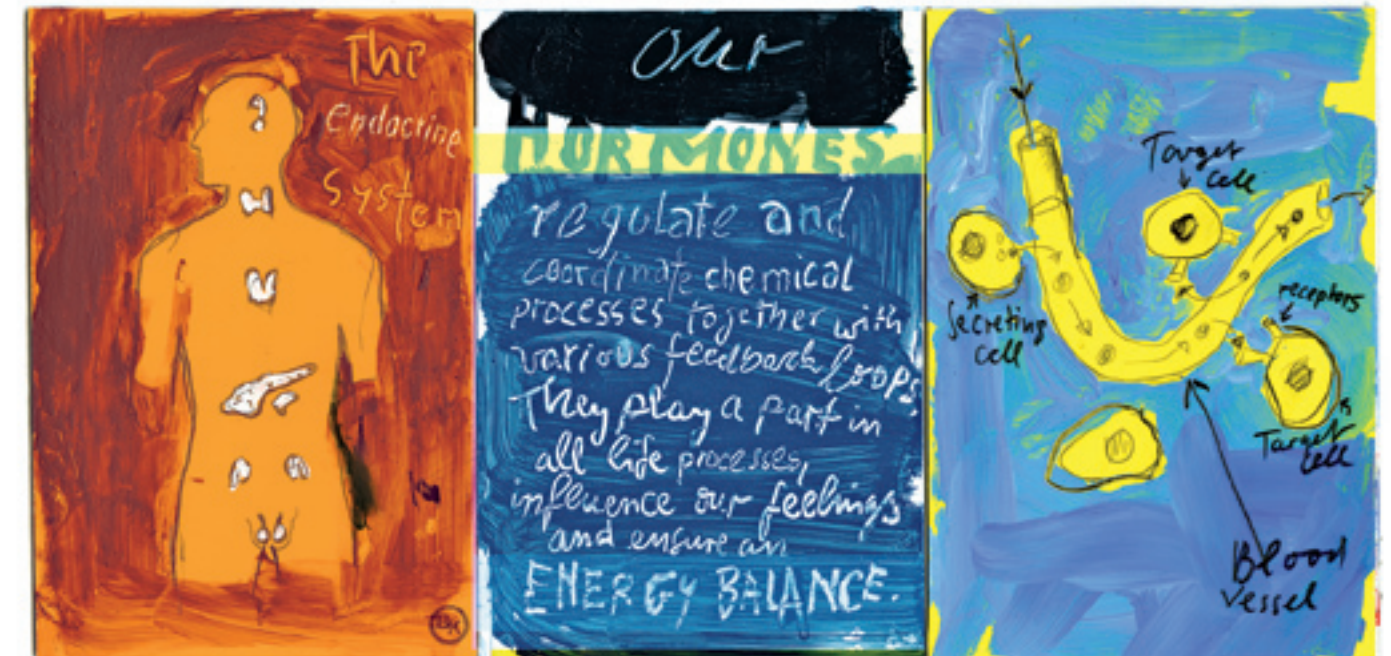 The
Endocrine
System
our
HORMONES
regulate and
coordinate chemical
processes together with
various feedback loops.
They play a part in
all life processes,
influence our feelings
and ensure an
ENERGY BALANCE.
Target
cell
Secreting
cell
receptors
Target
cell
Blood
vessel